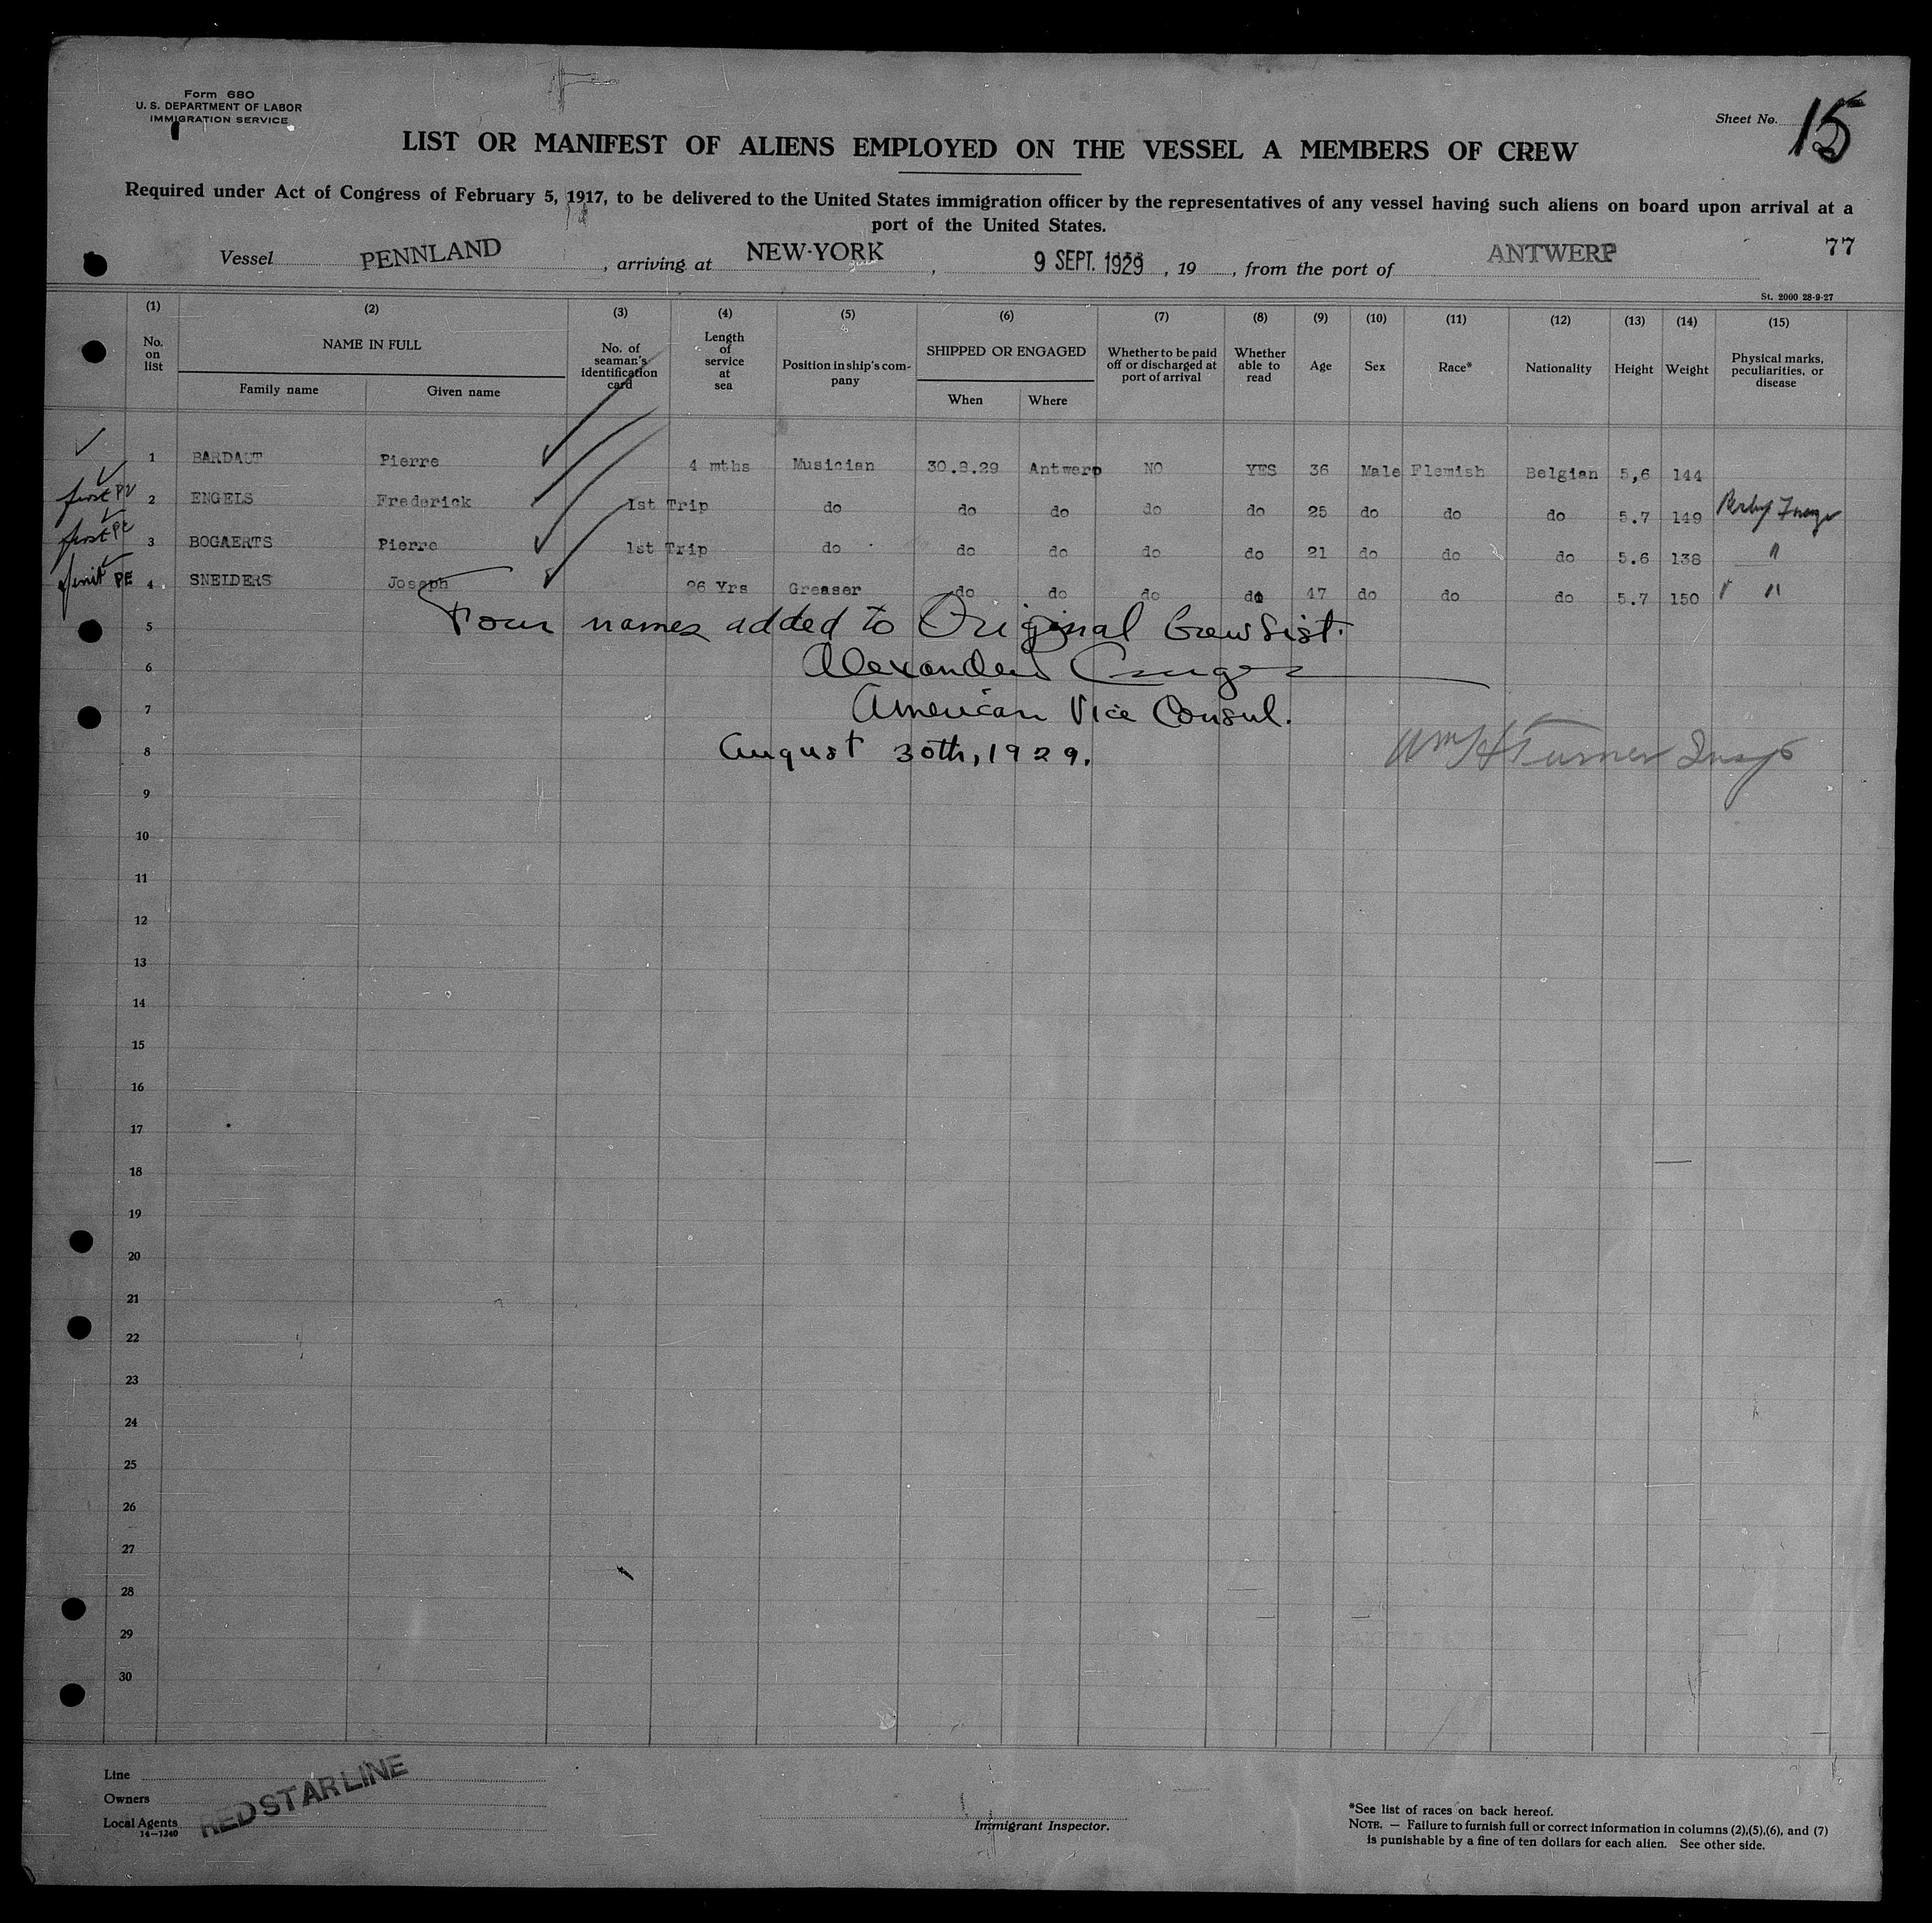 Form 680
U. S. DEPARTMENT OF LABOR
IMMIGRATION SERVICE
Sheet No. 15
LIST OR MANIFEST OF ALIENS EMPLOYED ON THE VESSEL A MEMBERS OF CREW
Required under Act of Congress of February 5, 1917, to be delivered to the United States immigration officer by the representatives of any vessel having such aliens on board upon arrival at a
port of the United States.
Vessel PENNLAND, arriving at NEW-YORK, 9 SEPT. 1929, 19, from the port of ANTWERP 77
St. 2000 28-9-27
(1) (2) (3) (4) (5) (6) (7) (8) (9) (10) (11) (12) (13) (14) (15)
No. on list NAME IN FULL Family name Given name No. of seaman's identification card Length of service at sea Position in ship's company SHIPPED OR ENGAGED When Where Whether to be paid off or discharged at port of arrival Whether able to read Age Sex Race* Nationality Height Weight Physical marks, peculiarities, or disease
1 BARDAUT Pierre 4 mths Musician 30.8.29 Antwerp NO YES 36 Male Flemish Belgian 5,6 144
first 2 ENGELS Frederick 1st Trip do do do do do 25 do do do 5.7 149
first 3 BOGAERTS Pierre 1st Trip do do do do do 21 do do do 5.6 138 "
PE 4 SNEIDERS Joseph 26 Yrs Greaser do do do do 47 do do do 5.7 150 "
5 Four names added to Original Crew List.
6 Alexander
7 American Vice Consul.
8 August 30th, 1929. Wm H Turner Insp
9
10
11
12
13
14
15
16
17
18
19
20
21
22
23
24
25
26
27
28
29
30
Line
Owners
Local Agents
14-1240
RED STAR LINE
Immigrant Inspector.
*See list of races on back hereof.
NOTE. — Failure to furnish full or correct information in columns (2),(5),(6), and (7)
is punishable by a fine of ten dollars for each alien. See other side.